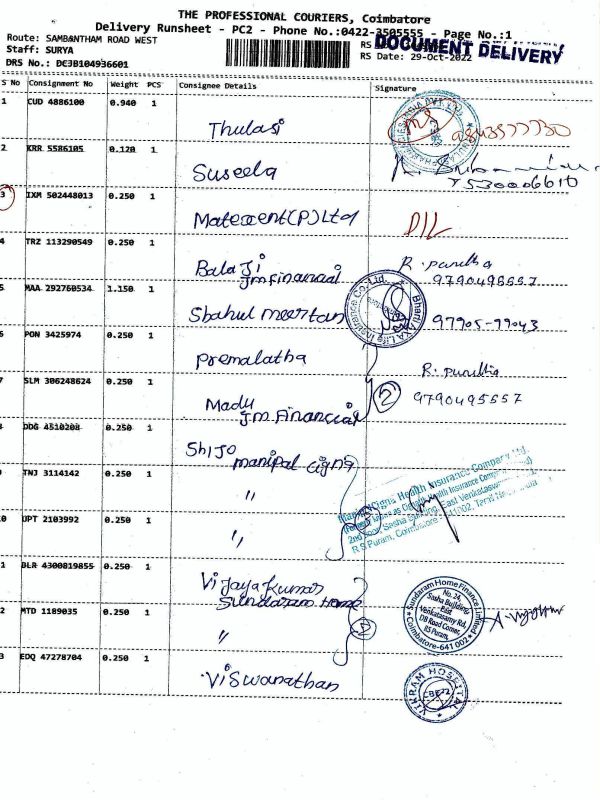 THE PROFESSIONAL COURIERS, Coimbatore
Delivery Runsheet - PC2 - Phone No.:0422-3505555 - Page No.:1
Route: SAMBANTHAM ROAD WEST
Staff: SURYA
DRS No.: DC3B104936601
DOCUMENT DELIVERY
RS Date: 29-Oct-2022
S No Consignment No Weight PCS Consignee Details Signature
1 CUD 4886100 0.940 1 Thulasi
2 KRR 5586105 0.120 1 Suseela 7530006610
3 IXM 502448013 0.250 1 Matexcent(P)Ltd D/L
4 TRZ 113290549 0.250 1 Balaji R. Punitha
JM Financial 9790495557
5 MAA 292760534 1.150 1 Shahul meertan 97905-99043
Bharti AXA Life Insurance Co. Ltd.
6 PON 3425974 0.250 1 Premalatha
7 SLM 306248624 0.250 1 Madu R. Punitha
JM Financial 2 9790495557
DDG 4510208 0.250 1 Shijo
manipal cigna
9 TNJ 3114142 0.250 1 "
0 UPT 2103992 0.250 1 "
ManipalCigna Health Insurance Company Ltd.
2nd Floor, Sesha Building, East Venkataswamy
R S Puram, Coimbatore - 641002,
1 BLR 4300819855 0.250 1 Vijayakumar
Sundaram Home
2 MTD 1189035 0.250 1 "
Sundaram Home Finance Limited
No. 24,
Sesha Buildings
East
Venkatasamy Rd,
DB Road Corner,
RS Puram,
Coimbatore-641 002
3 EDQ 47278704 0.250 1 Viswanathan
VIKRAM HOSPITAL
CBE-2